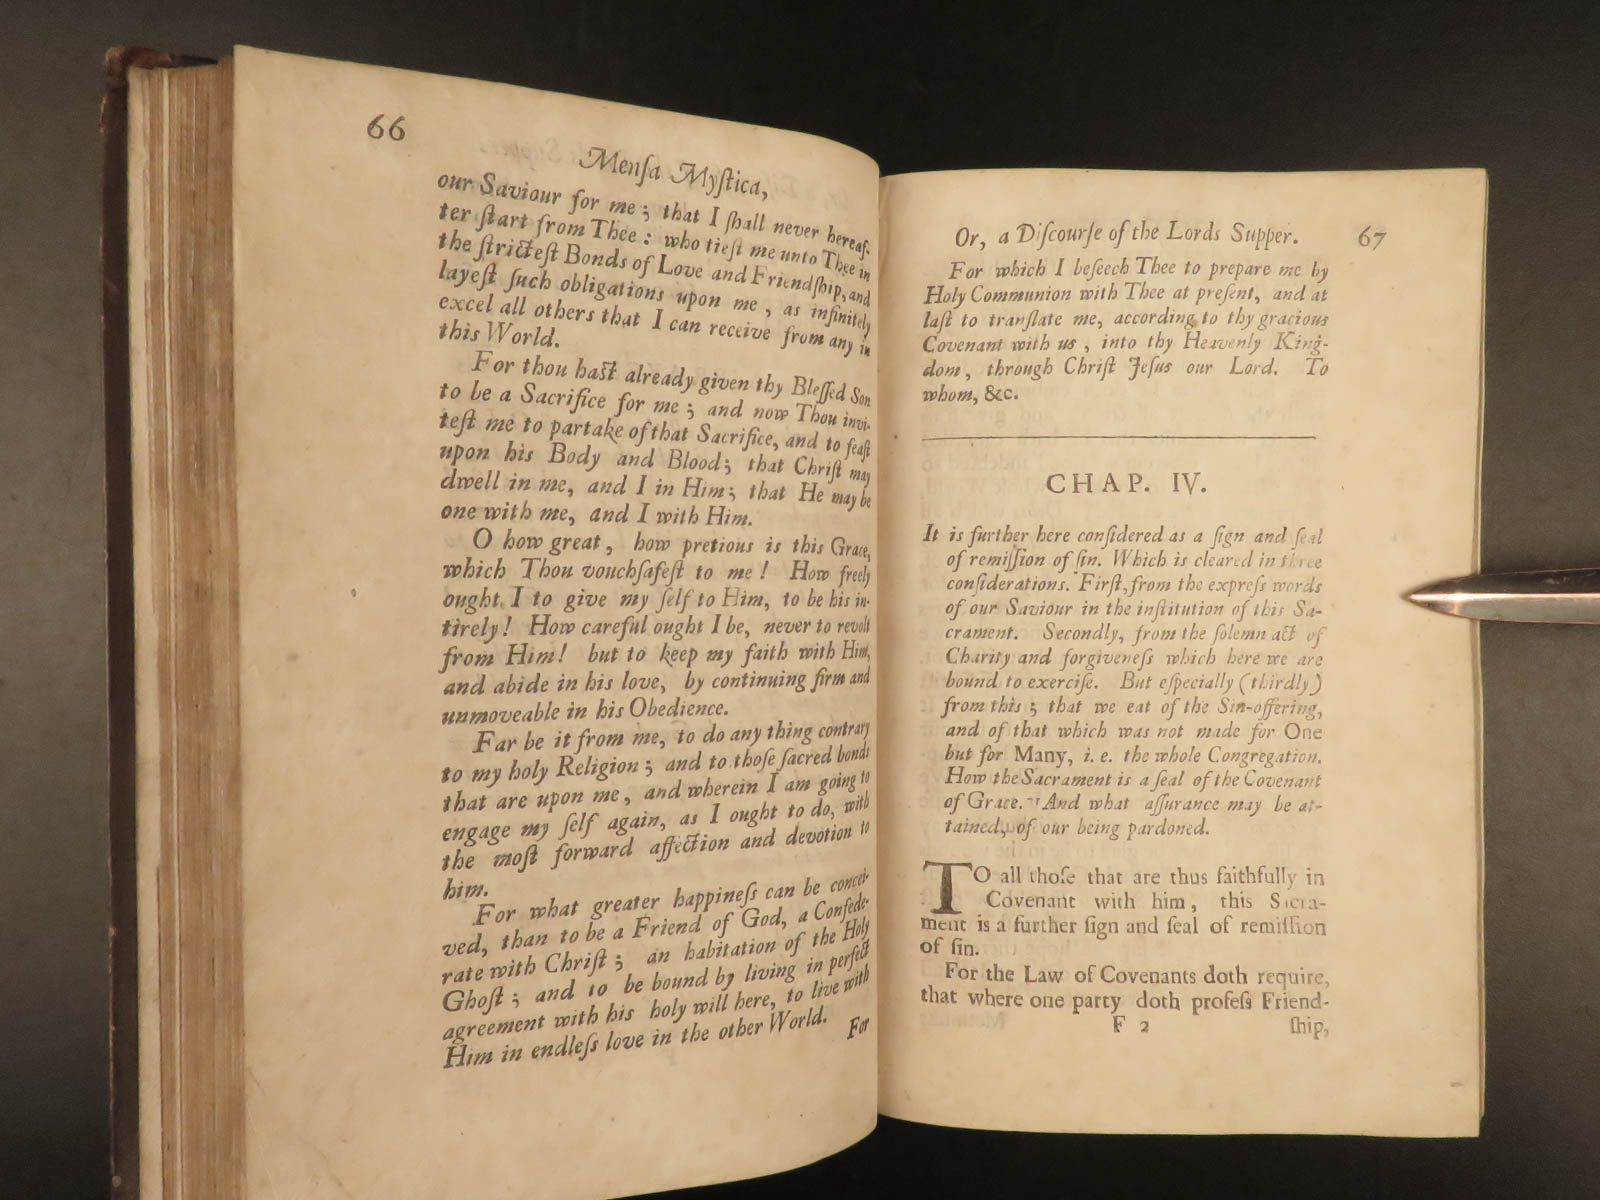 66
Menſa Myſtica,
our Saviour for me; that I ſhall never hereaf-
ter ſtart from Thee: who tieſt me unto Thee in
the ſtricteſt Bonds of Love and Friendſhip, and
layeſt ſuch obligations upon me, as infinitely
excel all others that I can receive from any in
this World.
For thou haſt already given thy Bleſſed Son
to be a Sacrifice for me; and now Thou invi-
teſt me to partake of that Sacrifice, and to feaſt
upon his Body and Blood; that Chriſt may
dwell in me, and I in Him; that He may be
one with me, and I with Him.
O how great, how pretious is this Grace,
which Thou vouchſafeſt to me! How freely
ought I to give my ſelf to Him, to be his in-
tirely! How careful ought I be, never to revolt
from Him! but to keep my faith with Him,
and abide in his love, by continuing firm and
unmoveable in his Obedience.
Far be it from me, to do any thing contrary
to my holy Religion; and to thoſe ſacred bonds
that are upon me, and wherein I am going to
engage my ſelf again, as I ought to do, with
the moſt forward affection and devotion to
him.
For what greater happineſs can be concei-
ved, than to be a Friend of God, a Confede-
rate with Chriſt; an habitation of the Holy
Ghoſt; and to be bound by living in perfect
agreement with his holy will here, to live with
Him in endleſs love in the other World.
For
Or, a Diſcourſe of the Lords Supper. 67
For which I beſeech Thee to prepare me by
Holy Communion with Thee at preſent, and at
laſt to tranſlate me, according to thy gracious
Covenant with us, into thy Heavenly King-
dom, through Chriſt Jeſus our Lord. To
whom, &c.
CHAP. IV.
It is further here conſidered as a ſign and ſeal
of remiſſion of ſin. Which is cleared in three
conſiderations. Firſt, from the expreſs words
of our Saviour in the inſtitution of this Sa-
crament. Secondly, from the ſolemn act of
Charity and forgiveneſs which here we are
bound to exerciſe. But eſpecially (thirdly)
from this; that we eat of the Sin-offering,
and of that which was not made for One
but for Many, i. e. the whole Congregation.
How the Sacrament is a ſeal of the Covenant
of Grace. And what aſſurance may be at-
tained, of our being pardoned.
TO all thoſe that are thus faithfully in
Covenant with him, this Sacra-
ment is a further ſign and ſeal of remiſſion
of ſin.
For the Law of Covenants doth require,
that where one party doth profeſs Friend-
F 2 ſhip,